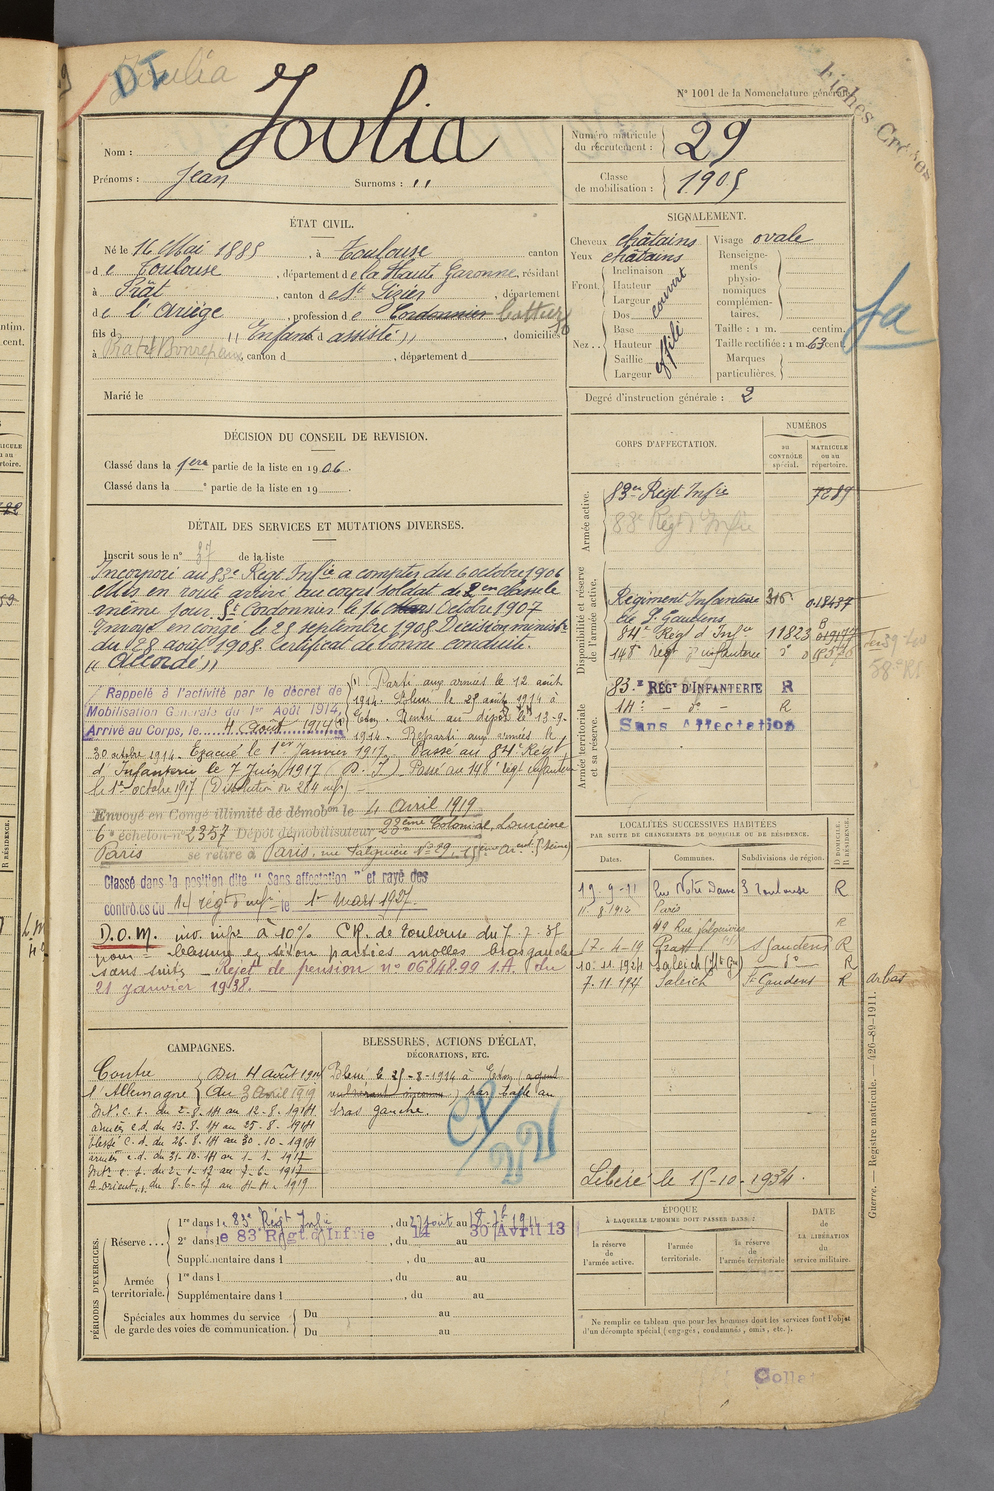 DI
Joulia
N° 1001 de la Nomenclature générale.
Fiches Croisées
Nom : Joulia
Prénoms : Jean Surnoms : "
Numéro matricule du recrutement : 29
Classe de mobilisation : 1905
ÉTAT CIVIL.
Né le 16 Mai 1885, à Toulouse canton
de Toulouse, département de la Haute Garonne, résidant
à Prat, canton de St Lizier, département
de l'Ariège, profession de Cordonnier
fils d " Enfant d assisté ", domiciliés
à Prat et Bonrepaux canton d , département d
Marié le
SIGNALEMENT.
Cheveux châtains
Yeux châtains
Front. Inclinaison
Hauteur
Largeur
couvert
Nez Dos
Base
Hauteur
Saillie
Largeur
effilé
Visage ovale
Renseignements physionomiques complémentaires.
Taille : 1 m. centim.
Taille rectifiée : 1 m. 63 cent.
Marques particulières.
Degré d'instruction générale : 2
fa
DÉCISION DU CONSEIL DE REVISION.
Classé dans la 1ère partie de la liste en 1906.
Classé dans la e partie de la liste en 19
DÉTAIL DES SERVICES ET MUTATIONS DIVERSES.
Inscrit sous le n° 37 de la liste
Incorporé au 83e Regt Infie a compter du 6 octobre 1906
Mis en route arrivé au corps soldat de 2em classe le
même jour. St Cordonnier le 16 Octobre 1907
Envoyé en congé le 28 septembre 1908 Décision ministle
du 28 août 1908. Certificat de bonne conduite.
" Accordé "
Rappelé à l'activité par le décret de
Mobilisation Générale du 1er Août 1914,
Arrivé au Corps, le 4 Août 1914 (1)
(1) Parti aux armées le 12 août
1914. Blessé le 25 août 1914 à
Rentré au dépôt le 13-9-
1914. Reparti aux armées le
30 octobre 1914. Evacué le 1er Janvier 1917. Passé au 84e Régt
d'Infanterie le 7 Juin 1917 (D. I). Passé au 148e régt infanterie
le 1er octobre 1917 (Dissolution du 284 inf)
Envoyé en Congé illimité de démobon le 4 Avril 1919
6e échelon n° 2357 Dépôt démobilisateur 23eme Colonial, Lourcine
Paris se retire à Paris, rue Falguière N° 39. (15eme Arond. Seine)
Classé dans la position dite " Sans affectation " et rayé des
contrôles du 14 régt d'inf le 1er mars 1927.
D.O.M. inv. infre à 10% C.R. de Toulouse du 7.7.37
pour blessure en séton parties molles bras gauche
sans suite. Rejet de pension n° 0684899 1.A. du
21 janvier 1938.
CORPS D'AFFECTATION.
NUMÉROS
au CONTRÔLE spécial.
MATRICULE ou au répertoire.
Armée active.
83em Régt Infie 7289
83e Régt d'Infie
Disponibilité et réserve de l'armée active.
Régiment Infanterie 316 018437
de St Gaudens
84e Regt d'Infie 11823
148e regt d'infanterie do
Armée territoriale et sa réserve.
83.e RÉGt D'INFANTERIE R
14e - do - R
Sans Affectation
LOCALITÉS SUCCESSIVES HABITÉES
PAR SUITE DE CHANGEMENTS DE DOMICILE OU DE RÉSIDENCE.
Dates. Communes. Subdivisions de région. D DOMICILE. R RÉSIDENCE.
19-9-11 Rue Notre Dame 3 Toulouse R
11.8.1912 Paris
49 Rue Falguière R
17-4-19 Pratt St Gaudens R
10-11-1924 Saleich (Hte Gne) do R
7.11.1927 Saleich St Gaudens R
Arbas
Libéré le 15-10-1934.
CAMPAGNES.
Contre l'Allemagne
Du 4 août 1914
au 3 Avril 1919
Int. c. s. du 2-8-14 au 12-8-1914
armées c.d. du 13-8-14 au 25-8-1914
blessé c.d. du 26-8-14 au 30-10-1914
armées c.d. du 31-10-14 au 1-1-1917
Int. c. s. du 2-1-17 au 7-6-1917
A. Orient du 8-6-17 au 4-4-1919
BLESSURES, ACTIONS D'ÉCLAT,
DÉCORATIONS, ETC.
Blessé le 25-8-1914 à
par balle au
bras gauche.
PÉRIODES D'EXERCICES.
Réserve
1re dans le 83e Régt Infie, du 27 août au 18-7bre 1911
2e dans le 83e Régt d'Infrie, du 14 au 30 Avril 13
Supplémentaire dans l , du au
Armée territoriale.
1re dans l , du au
Supplémentaire dans l , du au
Spéciales aux hommes du service
de garde des voies de communication.
Du au
Du au
ÉPOQUE
À LAQUELLE L'HOMME DOIT PASSER DANS :
la réserve de l'armée active.
l'armée territoriale.
la réserve de l'armée territoriale
DATE de LA LIBÉRATION du service militaire.
Ne remplir ce tableau que pour les hommes dont les services font l'objet
d'un décompte spécial (engagés, condamnés, omis, etc.).
Guerre. — Registre matricule. — 426-89-1911.
Collat